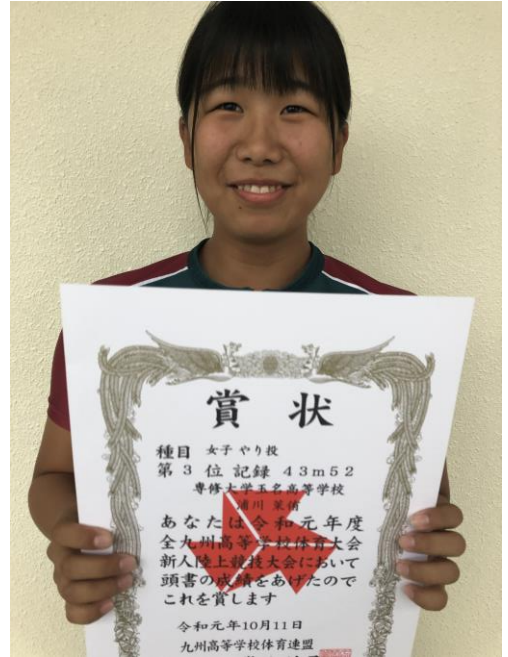 賞状
種目 女子 やり投
第3位 記録 43m52
専修大学玉名高等学校
浦川
あなたは令和元年度
全九州高等学校体育大会
新人陸上競技大会において
頭書の成績をあげたので
これを賞します
令和元年10月11日
九州高等学校体育連盟